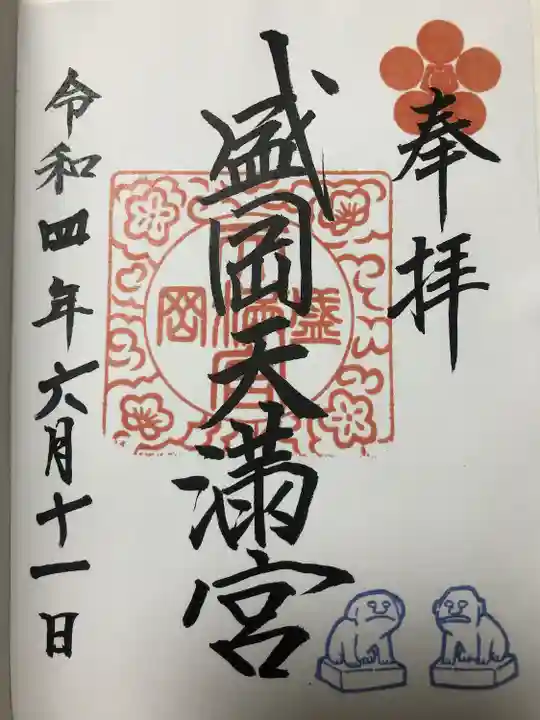 奉拝
盛岡天満宮
盛岡
天満宮
令和四年六月十一日